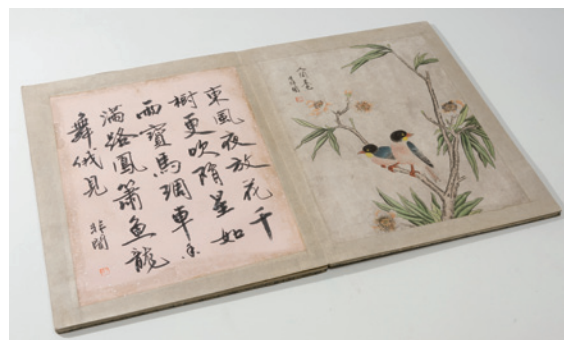 東風夜放花千
樹更吹隕星如
雨寶馬琱車香
滿路鳳簫魚龍
舞俄見
非闇
非闇